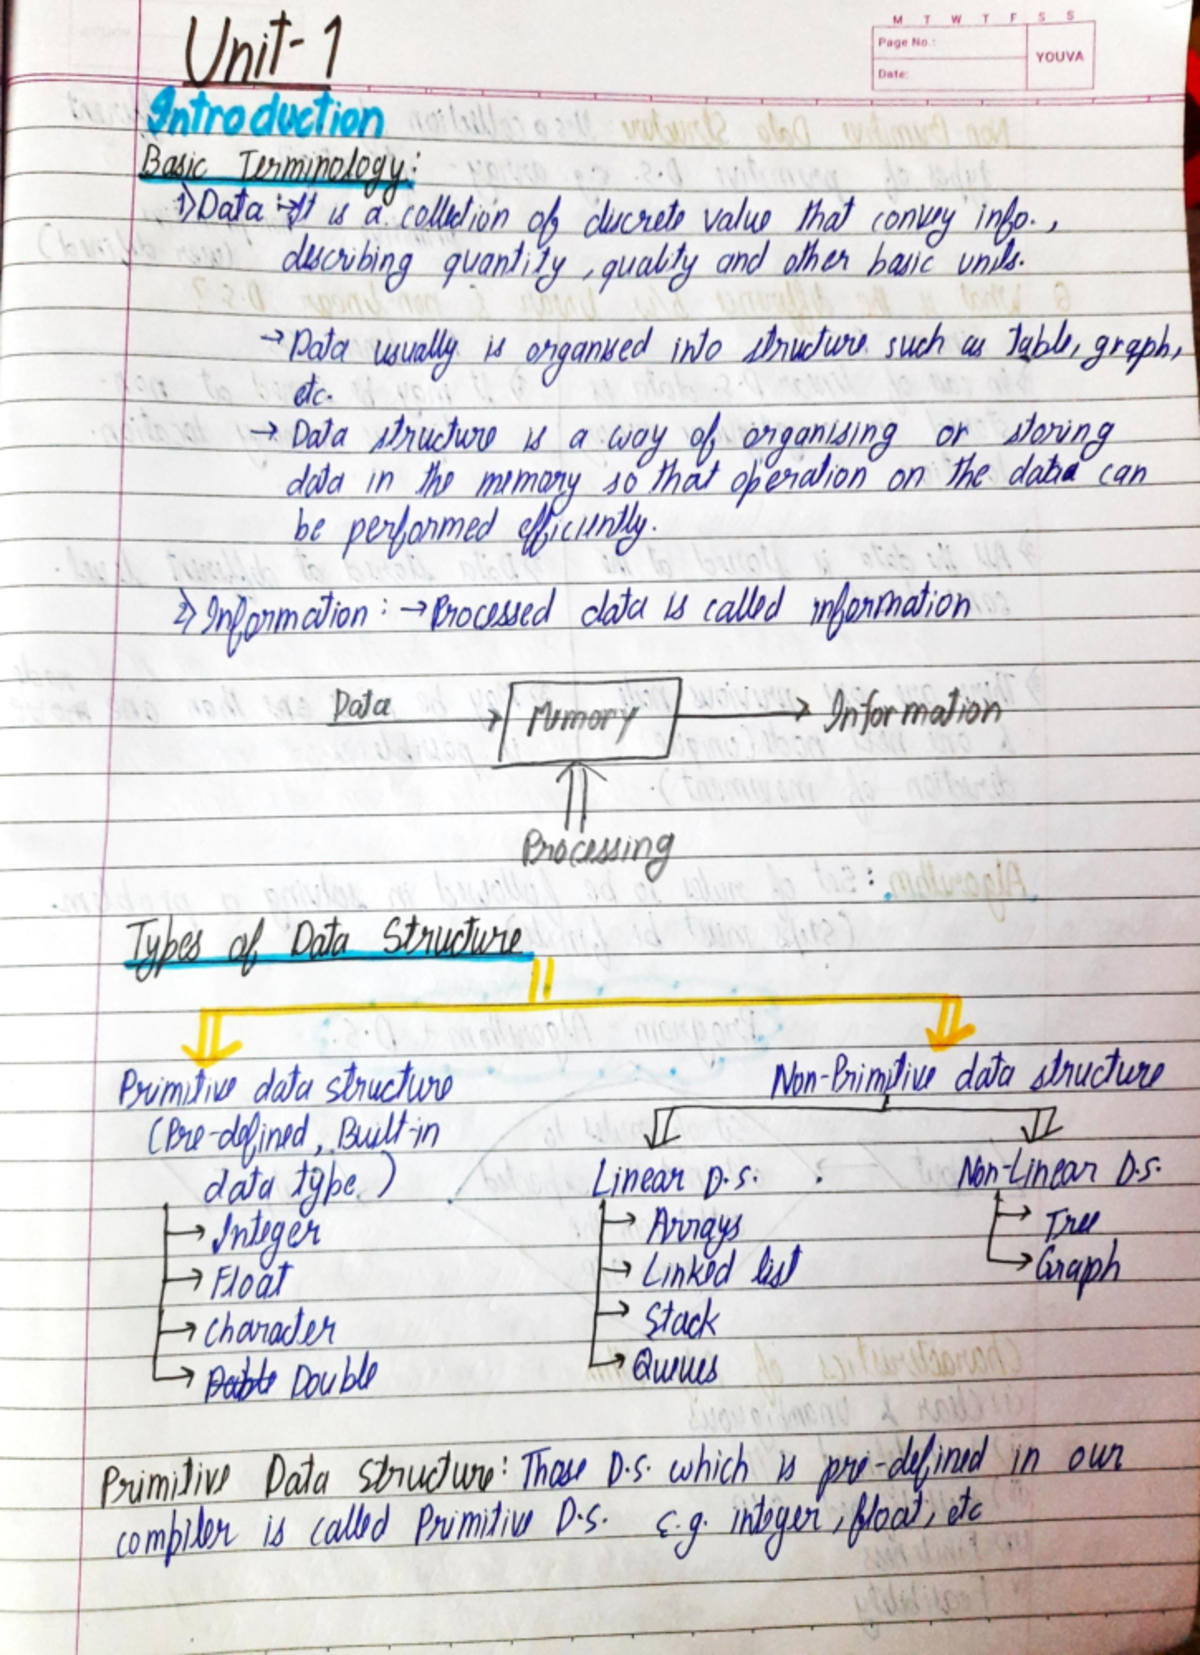 Unit-1
M T W T F S S
Page No.:
YOUVA
Date:
Introduction
Basic Terminology:
1) Data :→ It is a collection of discrete value that convey info.,
describing quantity, quality and other basic units.
→ Data usually is organised into structure such as Table, graph,
etc.
→ Data structure is a way of organising or storing
data in the memory so that operation on the data can
be performed efficiently.
2) Information: → Processed data is called information
Data → Memory → Information
Processing
Types of Data Structure
Primitive data structure
Non-Primitive data structure
(Pre-defined, Built-in
data type)
Linear D.S.
Non-Linear D.S.
→ Integer
→ Arrays
→ Tree
→ Float
→ Linked list
→ Graph
→ Character
→ Stack
→ Double
→ Queues
Primitive Data Structure: Those D.S. which is pre-defined in our
compiler is called Primitive D.S. E.g. integer, float, etc